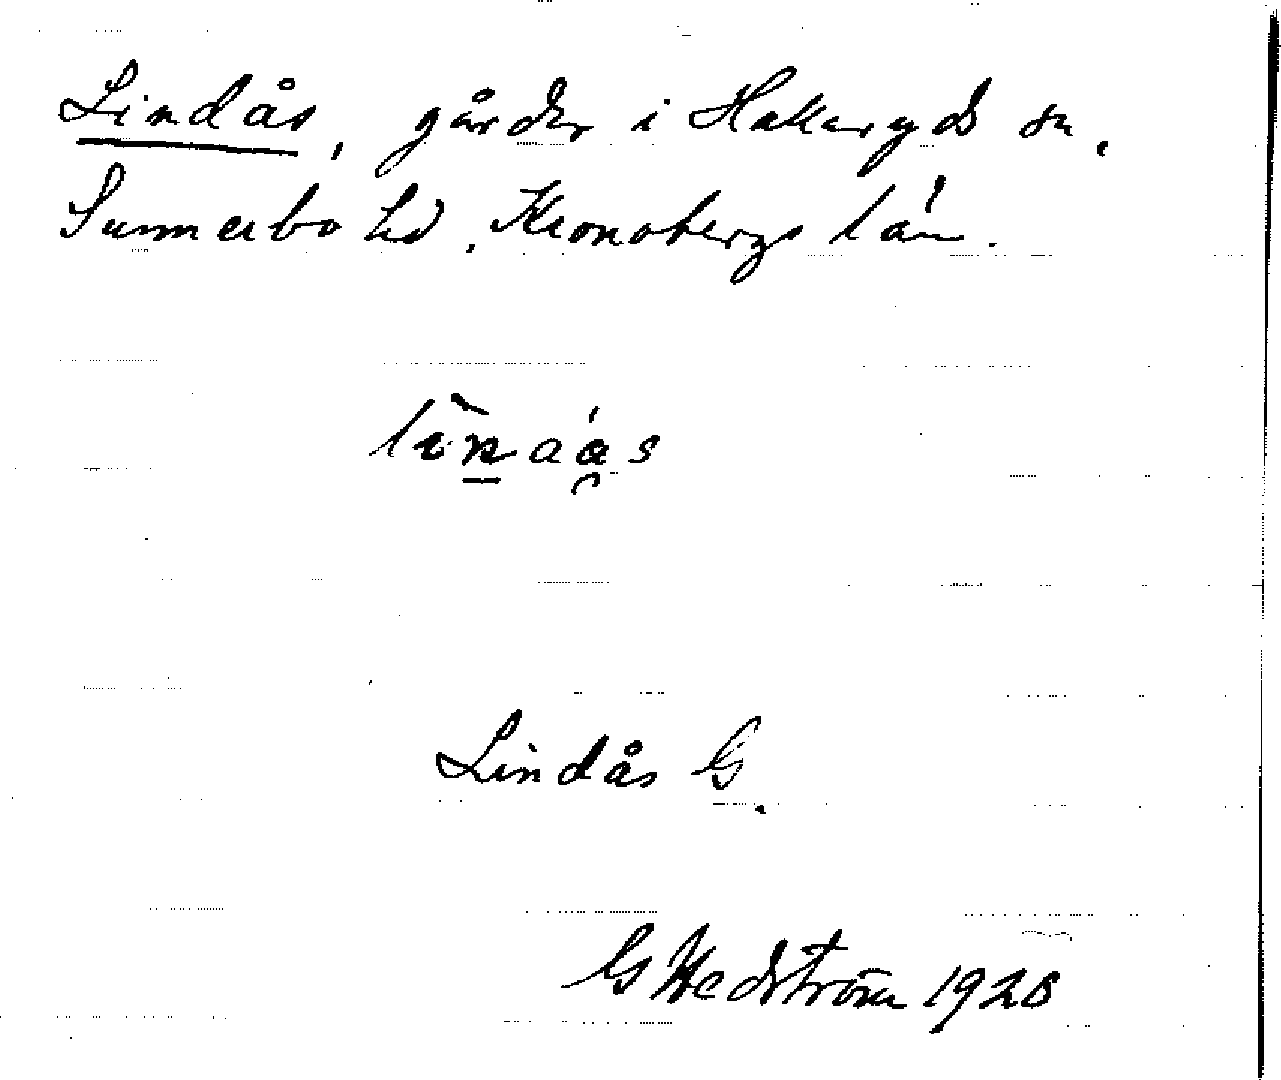 Lindås, gårdar i Hallaryds sn,
Sunnerbo hd, Kronobergs län.
Lindås G.
G Hedström 1928